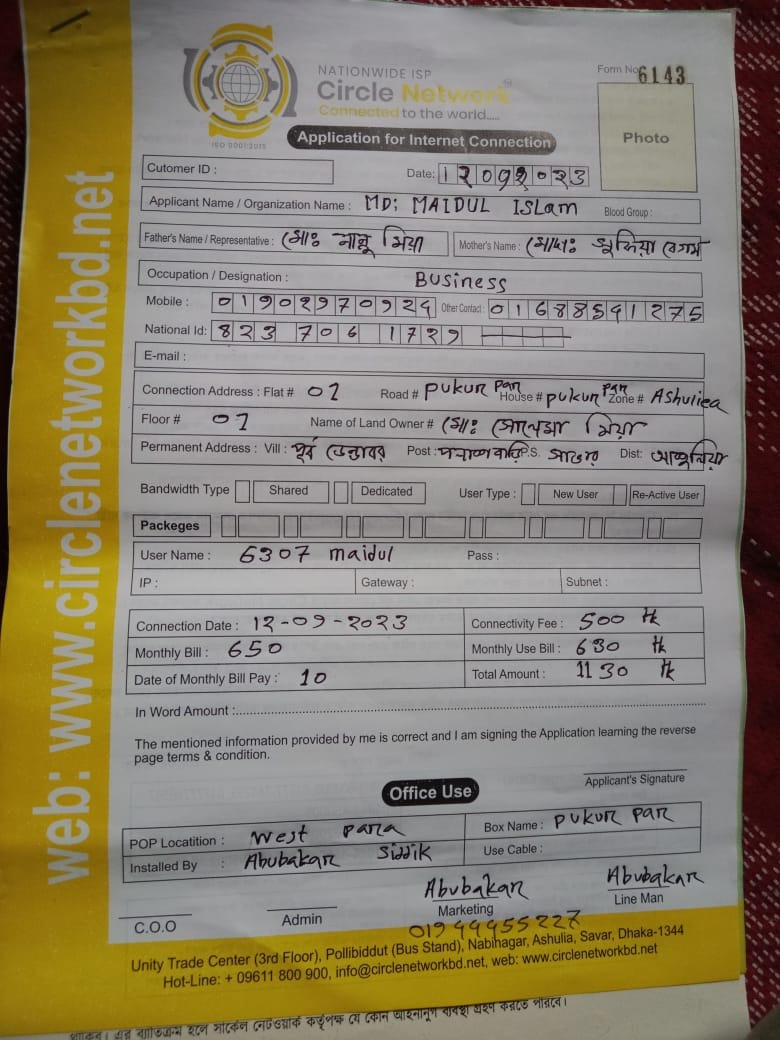 web: www.circlenetworkbd.net
NATIONWIDE ISP
Circle Network
Connected to the world.....
ISO 9001:2015
Form No 6143
Application for Internet Connection
Photo
Cutomer ID :
Date: 12092023
Applicant Name / Organization Name : MD: MAIDUL ISLam Blood Group :
Father's Name / Representative : মিয়া Mother's Name : বেগম
Occupation / Designation : Business
Mobile : 01902970924 Other Contact : 01688591275
National Id: 823 706 1729
E-mail :
Connection Address : Flat # 01 Road # pukur par House # pukur par Zone # Ashuliea
Floor # 01 Name of Land Owner # মোঃ মিয়া
Permanent Address : Vill : পূর্ব ডেন্ডাবর Post : P.S. সাভার Dist: আশুলিয়া
Bandwidth Type Shared Dedicated User Type : New User Re-Active User
Packeges
User Name : 6307 maidul Pass :
IP : Gateway : Subnet :
Connection Date : 12-09-2023 Connectivity Fee : 500 tk
Monthly Bill : 650 Monthly Use Bill : 630 tk
Date of Monthly Bill Pay : 10 Total Amount : 1130 tk
In Word Amount :
The mentioned information provided by me is correct and I am signing the Application learning the reverse
page terms & condition.
Applicant's Signature
Office Use
POP Locatition : West para Box Name : Pukur par
Installed By : Abubakar Siddik Use Cable :
Abubakar Abubakar
C.O.O Admin Marketing Line Man
01944455227
Unity Trade Center (3rd Floor), Pollibiddut (Bus Stand), Nabinagar, Ashulia, Savar, Dhaka-1344
Hot-Line: + 09611 800 900, info@circlenetworkbd.net, web: www.circlenetworkbd.net
থাকিব। এর ব্যতিক্রম হলে সার্কেল নেটওয়ার্ক কর্তৃপক্ষ যে কোন আইনানুগ ব্যবস্থা গ্রহণ করতে পারবে।